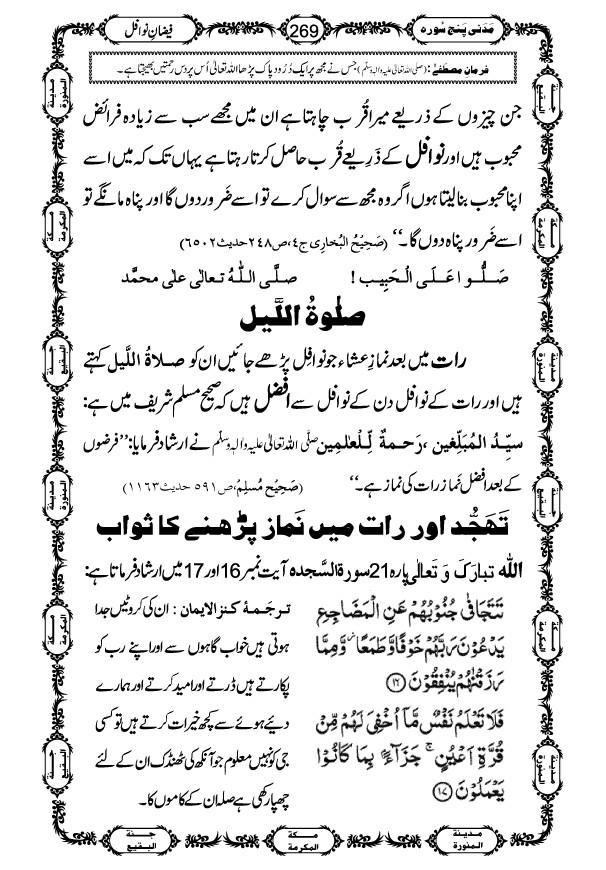 مَدَنی پنج سُورہ
269
فیضانِ نوافل
فرمانِ مصطفےٰ : (صلی اللہ تعالیٰ علیہ والہ وسلم) جس نے مجھ پر ایک دُرُود پاک پڑھا اللہ تعالیٰ اُس پر دس رحمتیں بھیجتا ہے۔
جن چیزوں کے ذریعے میرا قُرب چاہتا ہے ان میں مجھے سب سے زیادہ فرائض
محبوب ہیں اور نوافِل کے ذَرِیعے قُرب حاصل کرتا رہتا ہے یہاں تک کہ میں اسے
اپنا محبوب بنا لیتا ہوں اگر وہ مجھ سے سوال کرے تو اسے ضَرور دوں گا اور پناہ مانگے تو
اسے ضَرور پناہ دوں گا۔‘‘ (صَحِیْحُ البُخارِی ج٤،ص٢٤٨حدیث٦٥٠٢)
صَلُّوا عَلَی الْحَبِیب ! صلَّی اللّٰہُ تعالٰی علٰی محمَّد
صلٰوةُ اللَّیل
رات میں بعد نمازِ عشاء جو نوافِل پڑھے جائیں ان کو صلاةُ اللَّیل کہتے
ہیں اور رات کے نوافل دن کے نوافل سے افضل ہیں کہ صحیح مسلم شریف میں ہے:
سیِّدُ المُبلِّغین ،رَحمةٌ لِّلعٰلمِین صلَّی اللہ تعالیٰ علیہ والہ وسلَّم نے ارشاد فرمایا:’’فرضوں
کے بعد افضل نَماز رات کی نماز ہے۔‘‘ (صَحِیْح مُسلِم،ص٥٩١ حدیث١١٦٣)
تَهَجُّد اور رات میں نَماز پڑھنے کا ثواب
اللّٰہ تبارَکَ وَ تَعالیٰ پارہ 21 سورۃُ السَّجدہ آیت نمبر 16 اور 17 میں ارشاد فرماتا ہے:
تَتَجَافٰى جُنُوْبُهُمْ عَنِ الْمَضَاجِعِ
يَدْعُوْنَ رَبَّهُمْ خَوْفًا وَّطَمَعًا ۫ وَّمِمَّا
رَزَقْنٰهُمْ يُنْفِقُوْنَ ﴿١٦﴾
فَلَا تَعْلَمُ نَفْسٌ مَّاۤ اُخْفِیَ لَهُمْ مِّنْ
قُرَّةِ اَعْيُنٍ ۚ جَزَآءًۢ بِمَا كَانُوْا
يَعْمَلُوْنَ ﴿١٧﴾
ترجمۂ کنزالایمان : ان کی کروٹیں جدا
ہوتی ہیں خواب گاہوں سے اور اپنے رب کو
پکارتے ہیں ڈرتے اور امید کرتے اور ہمارے
دیے ہوئے سے کچھ خیرات کرتے ہیں تو کسی
جی کو نہیں معلوم جو آنکھ کی ٹھنڈک ان کے لئے
چھپا رکھی ہے صلہ ان کے کاموں کا۔
جنة البقیع
مکة المکرمة
مدینة المنورة
جنة البقیع
مکة المکرمة
مدینة المنورة
مدینة المنورة
مکة المکرمة
جنة البقیع
مدینة المنورة
مکة المکرمة
جنة البقیع
جنة البقیع
مکة المکرمة
مدینة المنورة